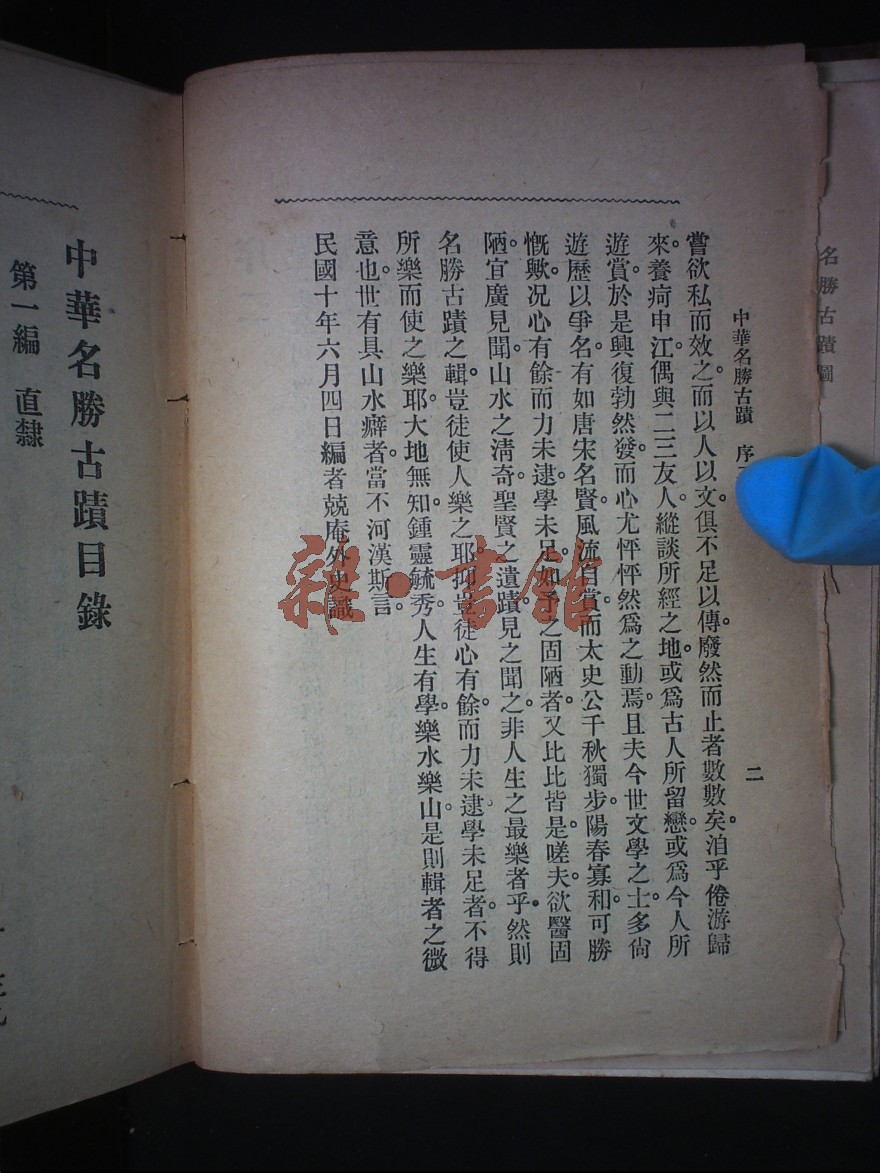 名勝古蹟圖
中華名勝古蹟 序
二
嘗欲私而效之。而以人以文。俱不足以傳。廢然而止者數數矣。洎乎倦游歸
來。養疴申江。偶與二三友人。縱談所經之地。或爲古人所留戀。或爲今人所
遊賞。於是興復勃然發。而心尤怦怦然爲之動焉。且夫今世文學之士。多尙
遊歷以爭名。有如唐宋名賢。風流自賞。而太史公千秋獨步。陽春寡和。可勝
慨歟。况心有餘而力未逮。學未足。如予之固陋者。又比比皆是。嗟夫。欲醫固
陋。宜廣見聞。山水之淸奇。聖賢之遺蹟。見之聞之。非人生之最樂者乎。然則
名勝古蹟之輯。豈徒使人樂之耶。抑豈徒心有餘而力未逮學未足者。不得
所樂而使之樂耶。大地無知。鍾靈毓秀。人生有學。樂水樂山。是則輯者之微
意也。世有具山水癖者。當不河漢斯言。
民國十年六月四日編者兢庵外史識
中華名勝古蹟目錄
第一編 直隸
雜·書館